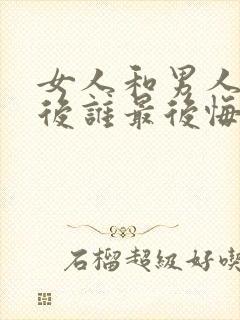 女人和男人
後誰最後悔
石榴超級好喫